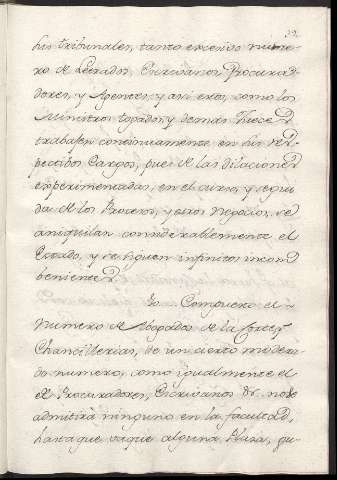 32
sus tribunales, tanto excesivo nume-
ro de Letrados, Escrivanos, Procura-
dores, y Agentes, y asi estos, como los
Ministros togados, y demas Juezes
trabajen continuamente en sus res-
pectibos Cargos, pues de las dilaciones
experimentadas, en el curso, y segui-
da de los Procesos, y otros Negocios, se
aniquilan considerablemente el
Estado, y se siguen infinitos incon-
benientes.
Yo Compuesto el
Numero de Abogados de la Corte, y
Chancillerias, de un cierto modera-
do numero, como igualmente el
de Procuradores, Escrivanos &c. no se
admitirá ninguno en la facultad,
hasta que vaque alguna Plaza, qu-